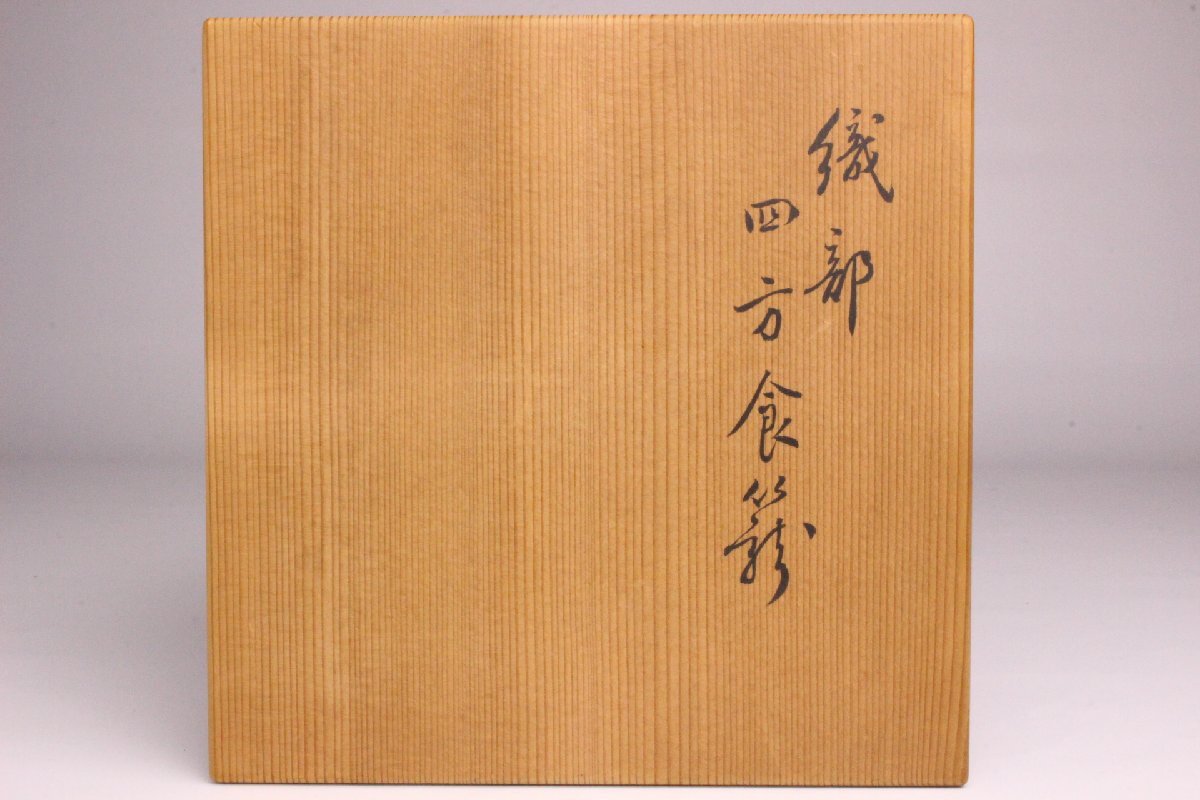 織部
四方食籠